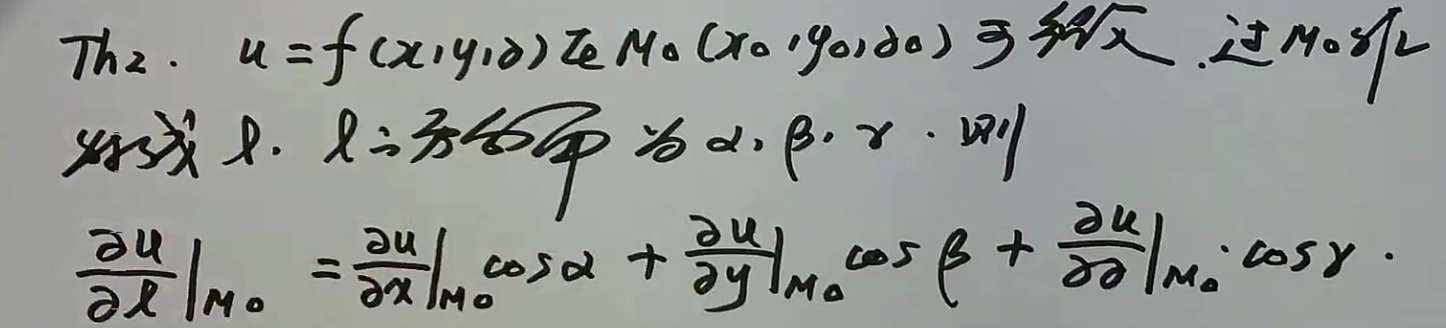 Th2. u=f(x,y,z)在M₀(x₀,y₀,z₀)可微.过M₀作
射线 l. l之方向角为α,β,γ.则
∂u/∂l|M₀ = ∂u/∂x|M₀ cosα + ∂u/∂y|M₀ cosβ + ∂u/∂z|M₀·cosγ.